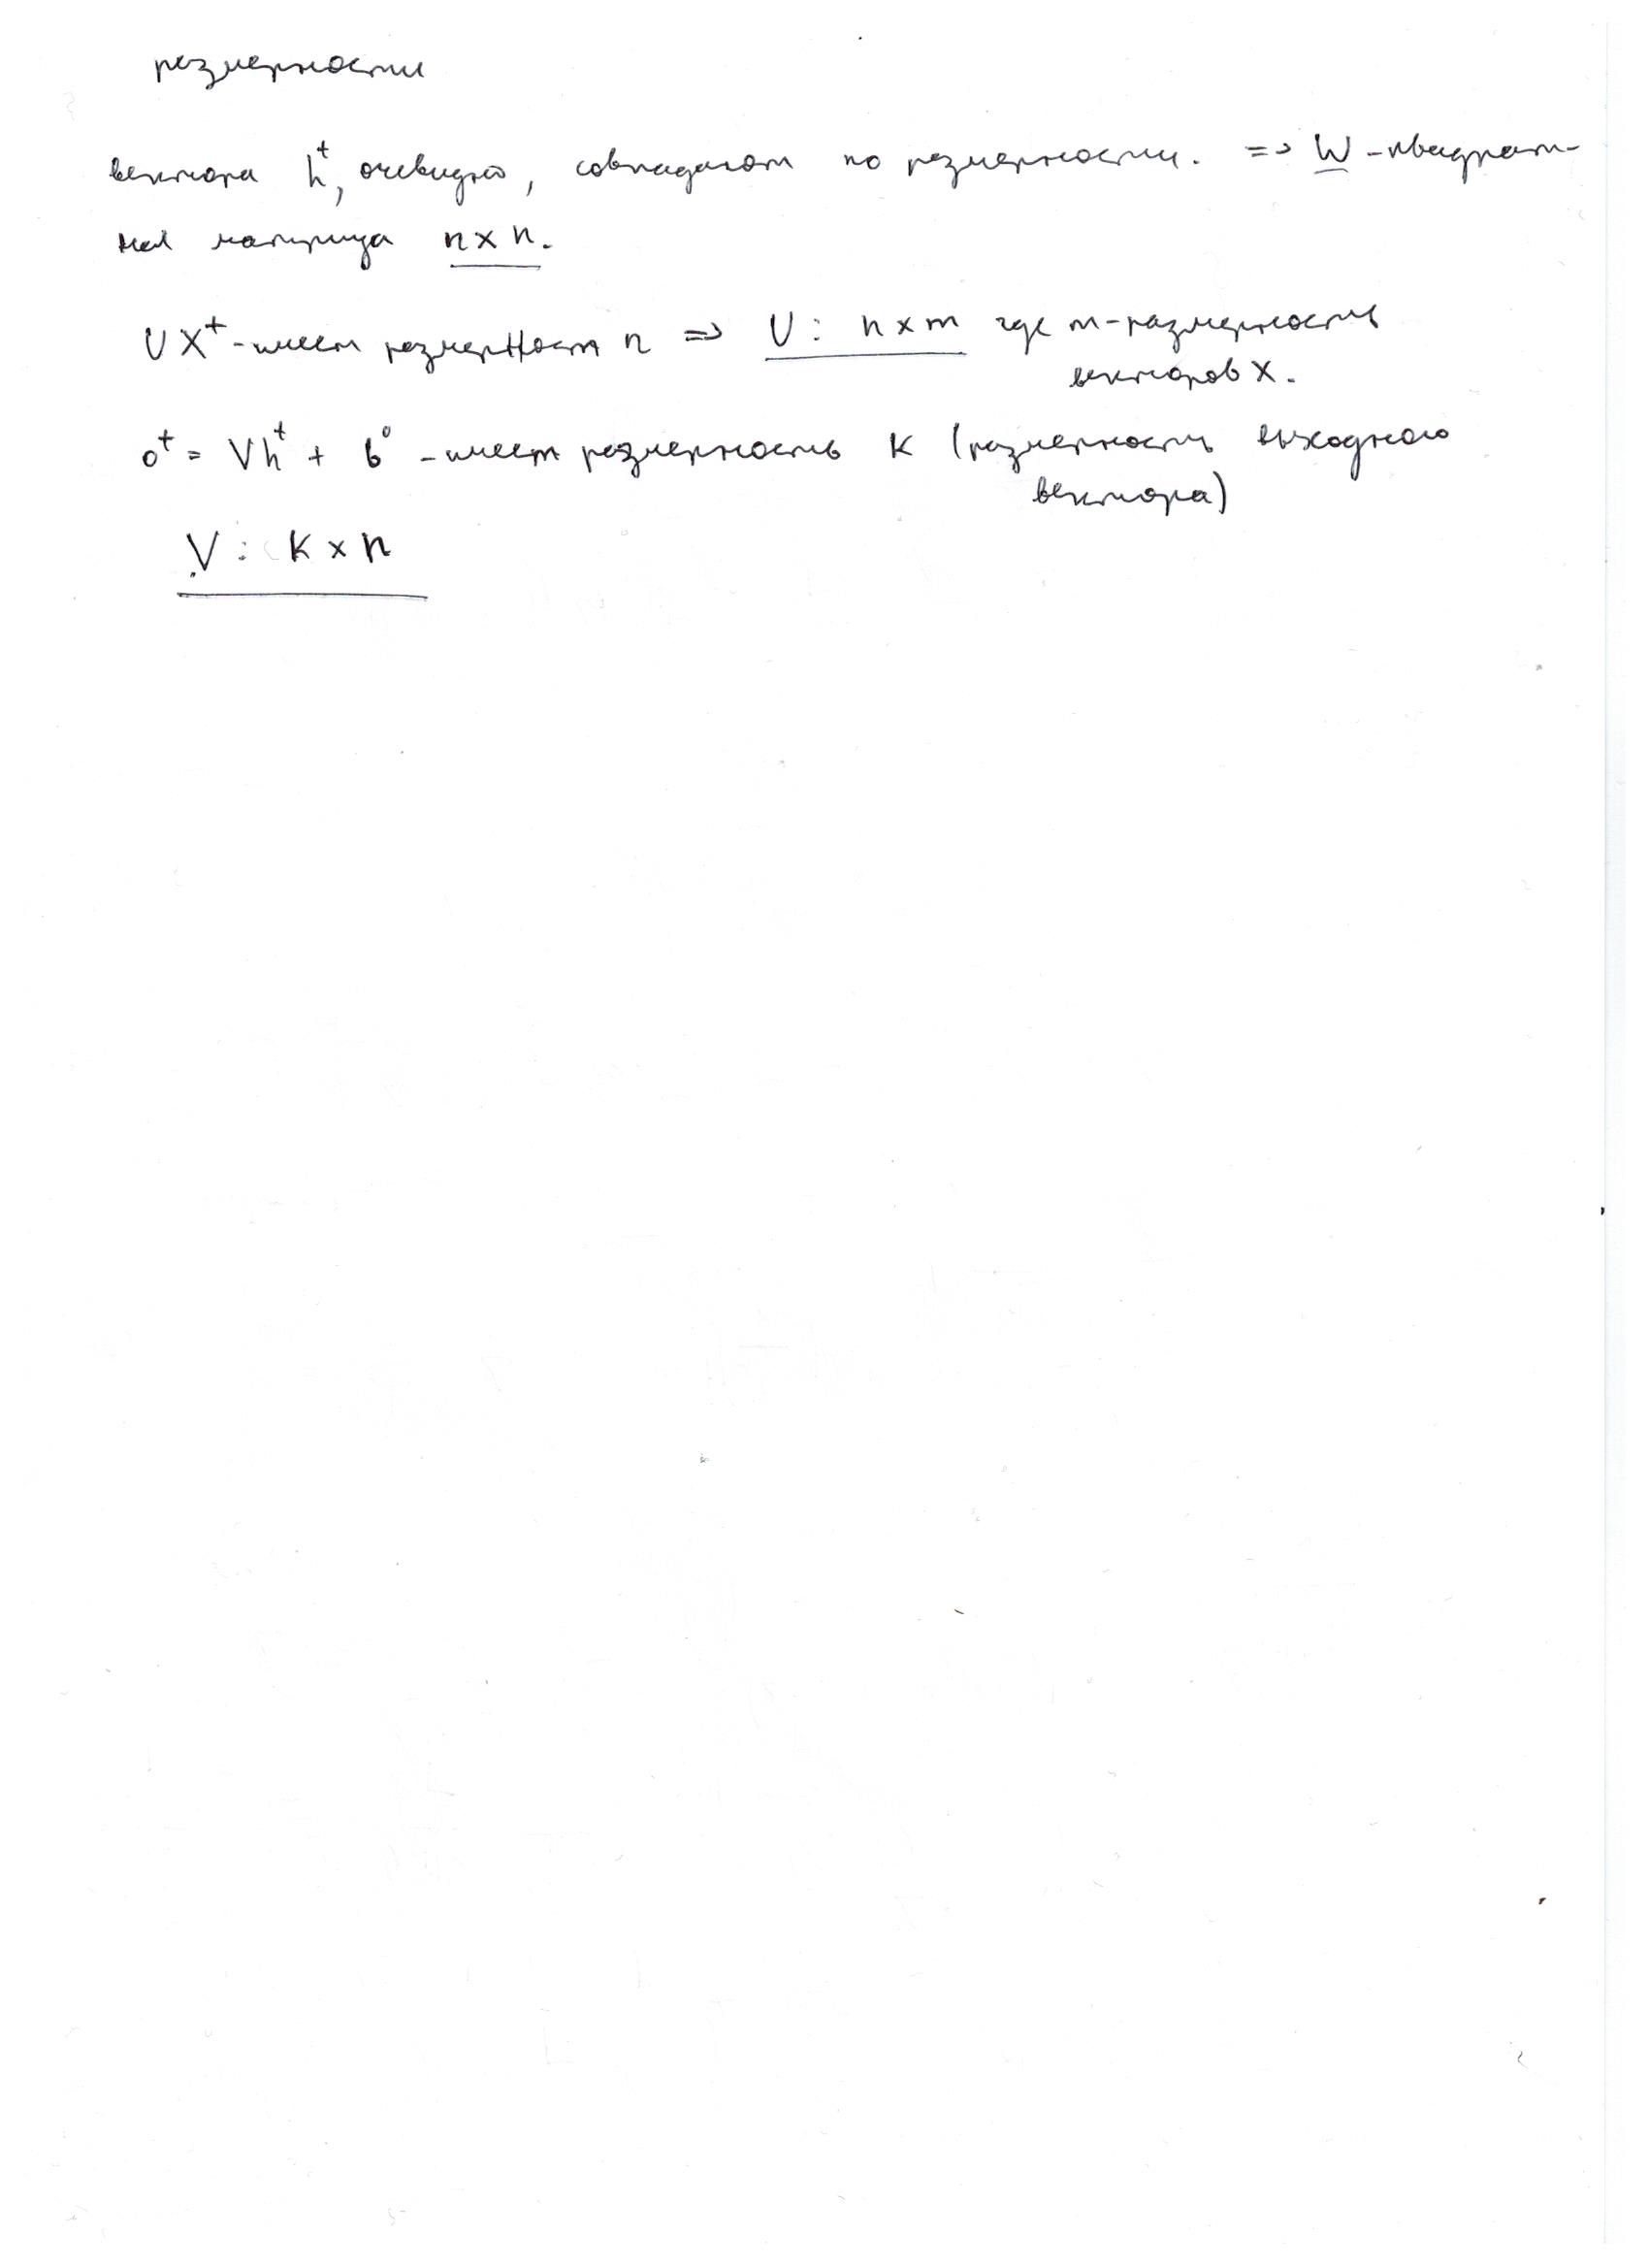 размерности
вектора h^t, очевидно, совпадают по размерности. => W - квадрат-
ная матрица n x n.
U X^t - имеет размерност n => U : n x m где m - размерность
векторов X.
o^t = V h^t + b^o - имеет размерность K (размерность выходного
вектора)
V : K x n